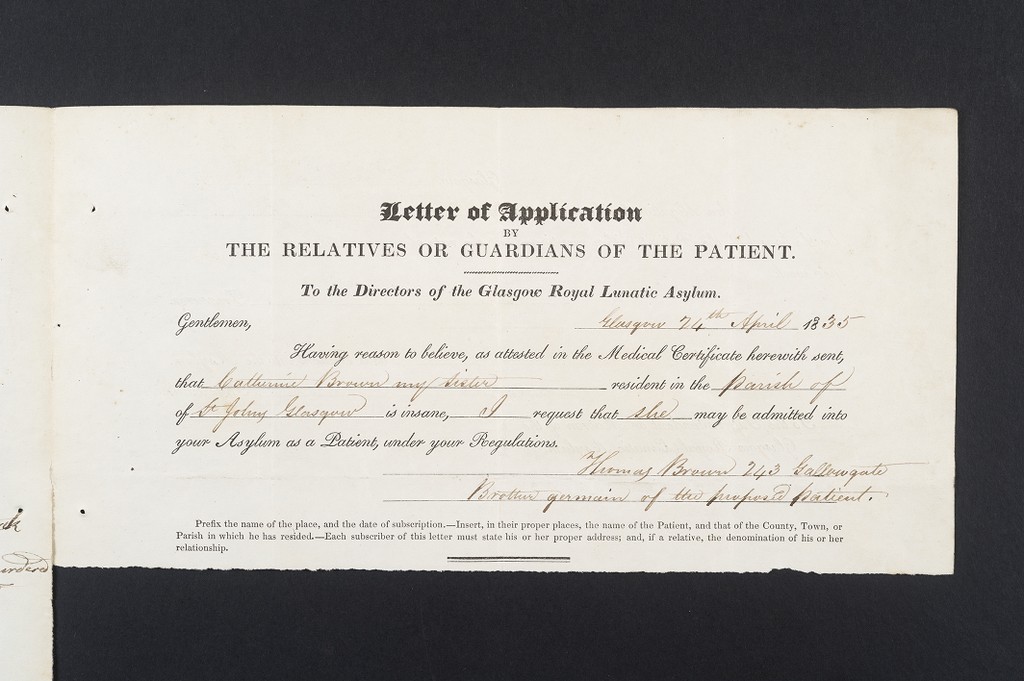 Letter of Application
BY
THE RELATIVES OR GUARDIANS OF THE PATIENT.
To the Directors of the Glasgow Royal Lunatic Asylum.
Gentlemen, Glasgow 24th April 1835
Having reason to believe, as attested in the Medical Certificate herewith sent,
that Catherine Brown my sister resident in the parish of
of St Johns Glasgow is insane, I request that she may be admitted into
your Asylum as a Patient, under your Regulations.
Thomas Brown 243 Gallowgate
Brother german of the proposed patient.
Prefix the name of the place, and the date of subscription.—Insert, in their proper places, the name of the Patient, and that of the County, Town, or
Parish in which he has resided.—Each subscriber of this letter must state his or her proper address; and, if a relative, the denomination of his or her
relationship.